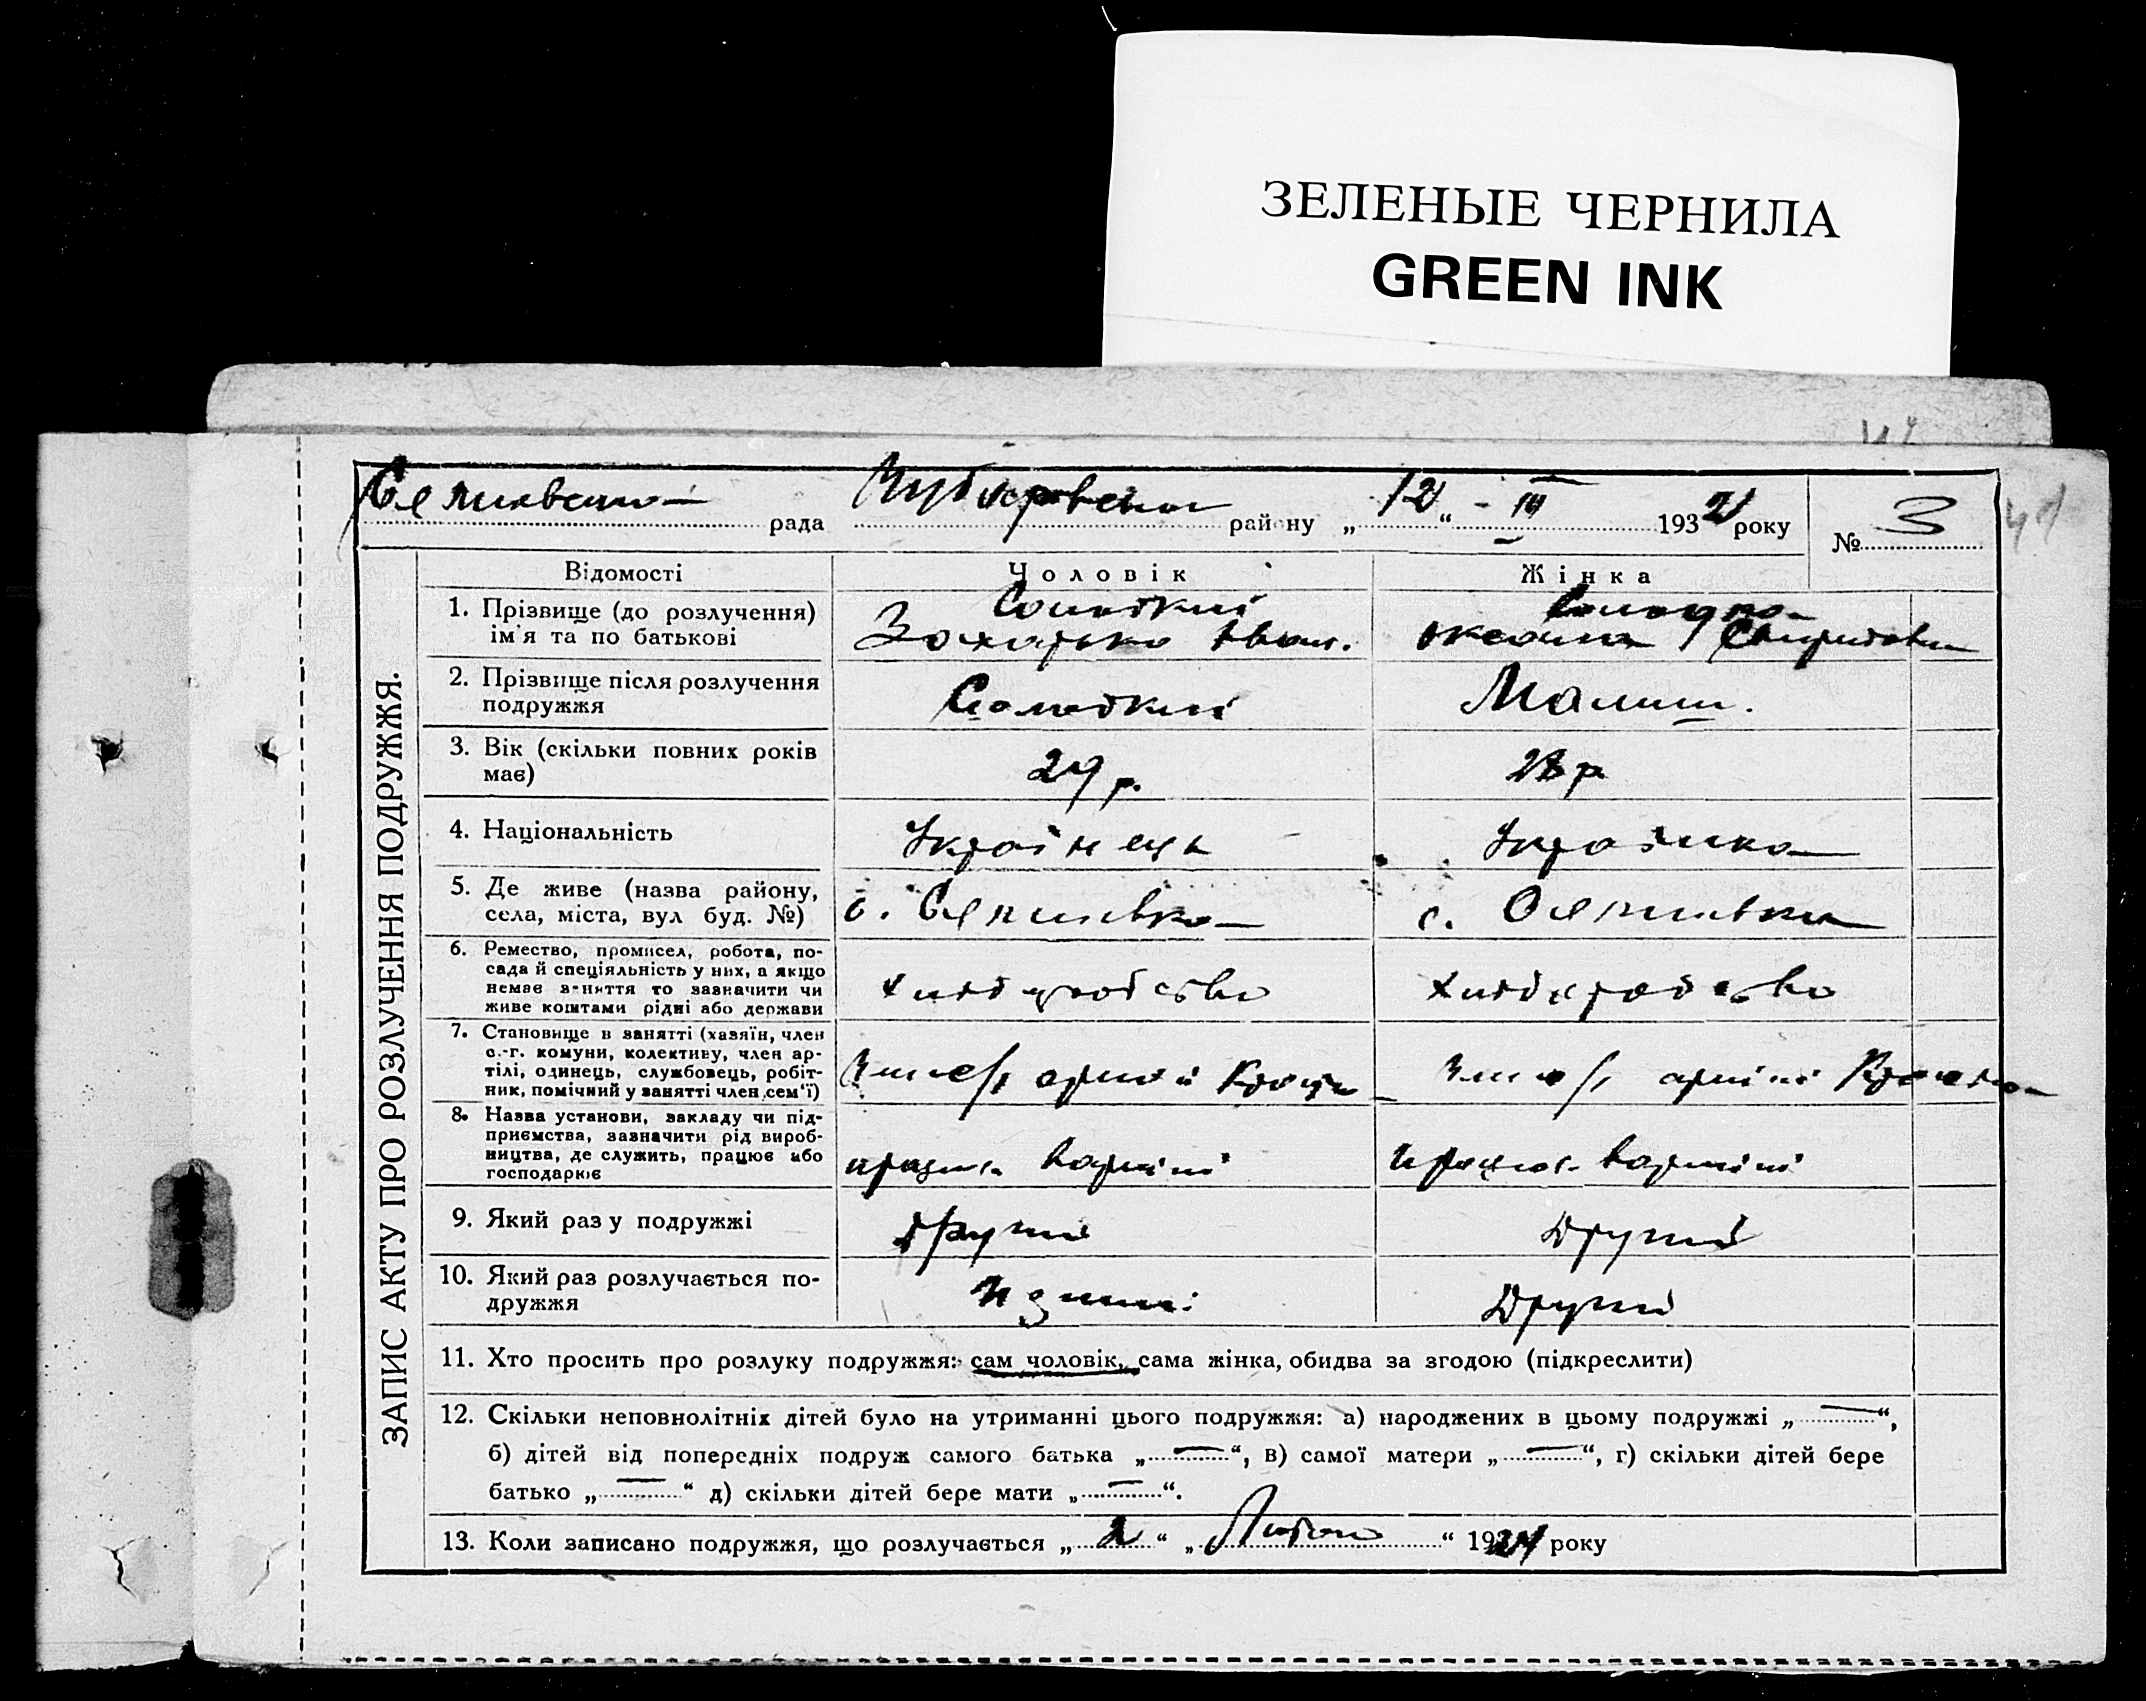 ЗЕЛЕНЫЕ ЧЕРНИЛА
GREEN INK
рада Чубарівської району „12“ - III 1932 року № 3
41
ЗАПИС АКТУ ПРО РОЗЛУЧЕННЯ ПОДРУЖЖЯ.
Відомості Чоловік Жінка
1. Прізвище (до розлучення)
ім'я та по батькові
Солодкий
Захарько Іван.
Оксана
2. Прізвище після розлучення
подружжя
Солодкий
3. Вік (скільки повних років
має)
29 р.
28 р
4. Національність
Українець
Українка
5. Де живе (назва району,
села, міста, вул буд. №)
с.
с.
6. Ремество, промисел, робота, по-
сада й спеціяльність у них, а якщо
немає заняття то зазначити чи
живе коштами рідні або держави
Хліборобство
Хліборобство
7. Становище в занятті (хазяїн, член
с.-г. комуни, колективу, член ар-
тілі, одинець, службовець, робіт-
ник, помічний у занятті член сем'ї)
Член с/г артілі
Член с/г артілі
8. Назва установи, закладу чи під-
приємства, зазначити рід вироб-
ництва, де служить, працює або
господарює
працює в артілі
працює в артілі
9. Який раз у подружжі
Другий
Другий
10. Який раз розлучається по-
дружжя
Другий
11. Хто просить про розлуку подружжя: сам чоловік, сама жінка, обидва за згодою (підкреслити)
12. Скільки неповнолітніх дітей було на утриманні цього подружжя: а) народжених в цьому подружжі „—“,
б) дітей від попередніх подруж самого батька „—“, в) самої матери „—“, г) скільки дітей бере
батько „—“ д) скільки дітей бере мати „—“.
13. Коли записано подружжя, що розлучається „2“ „Лютого“ 19 року